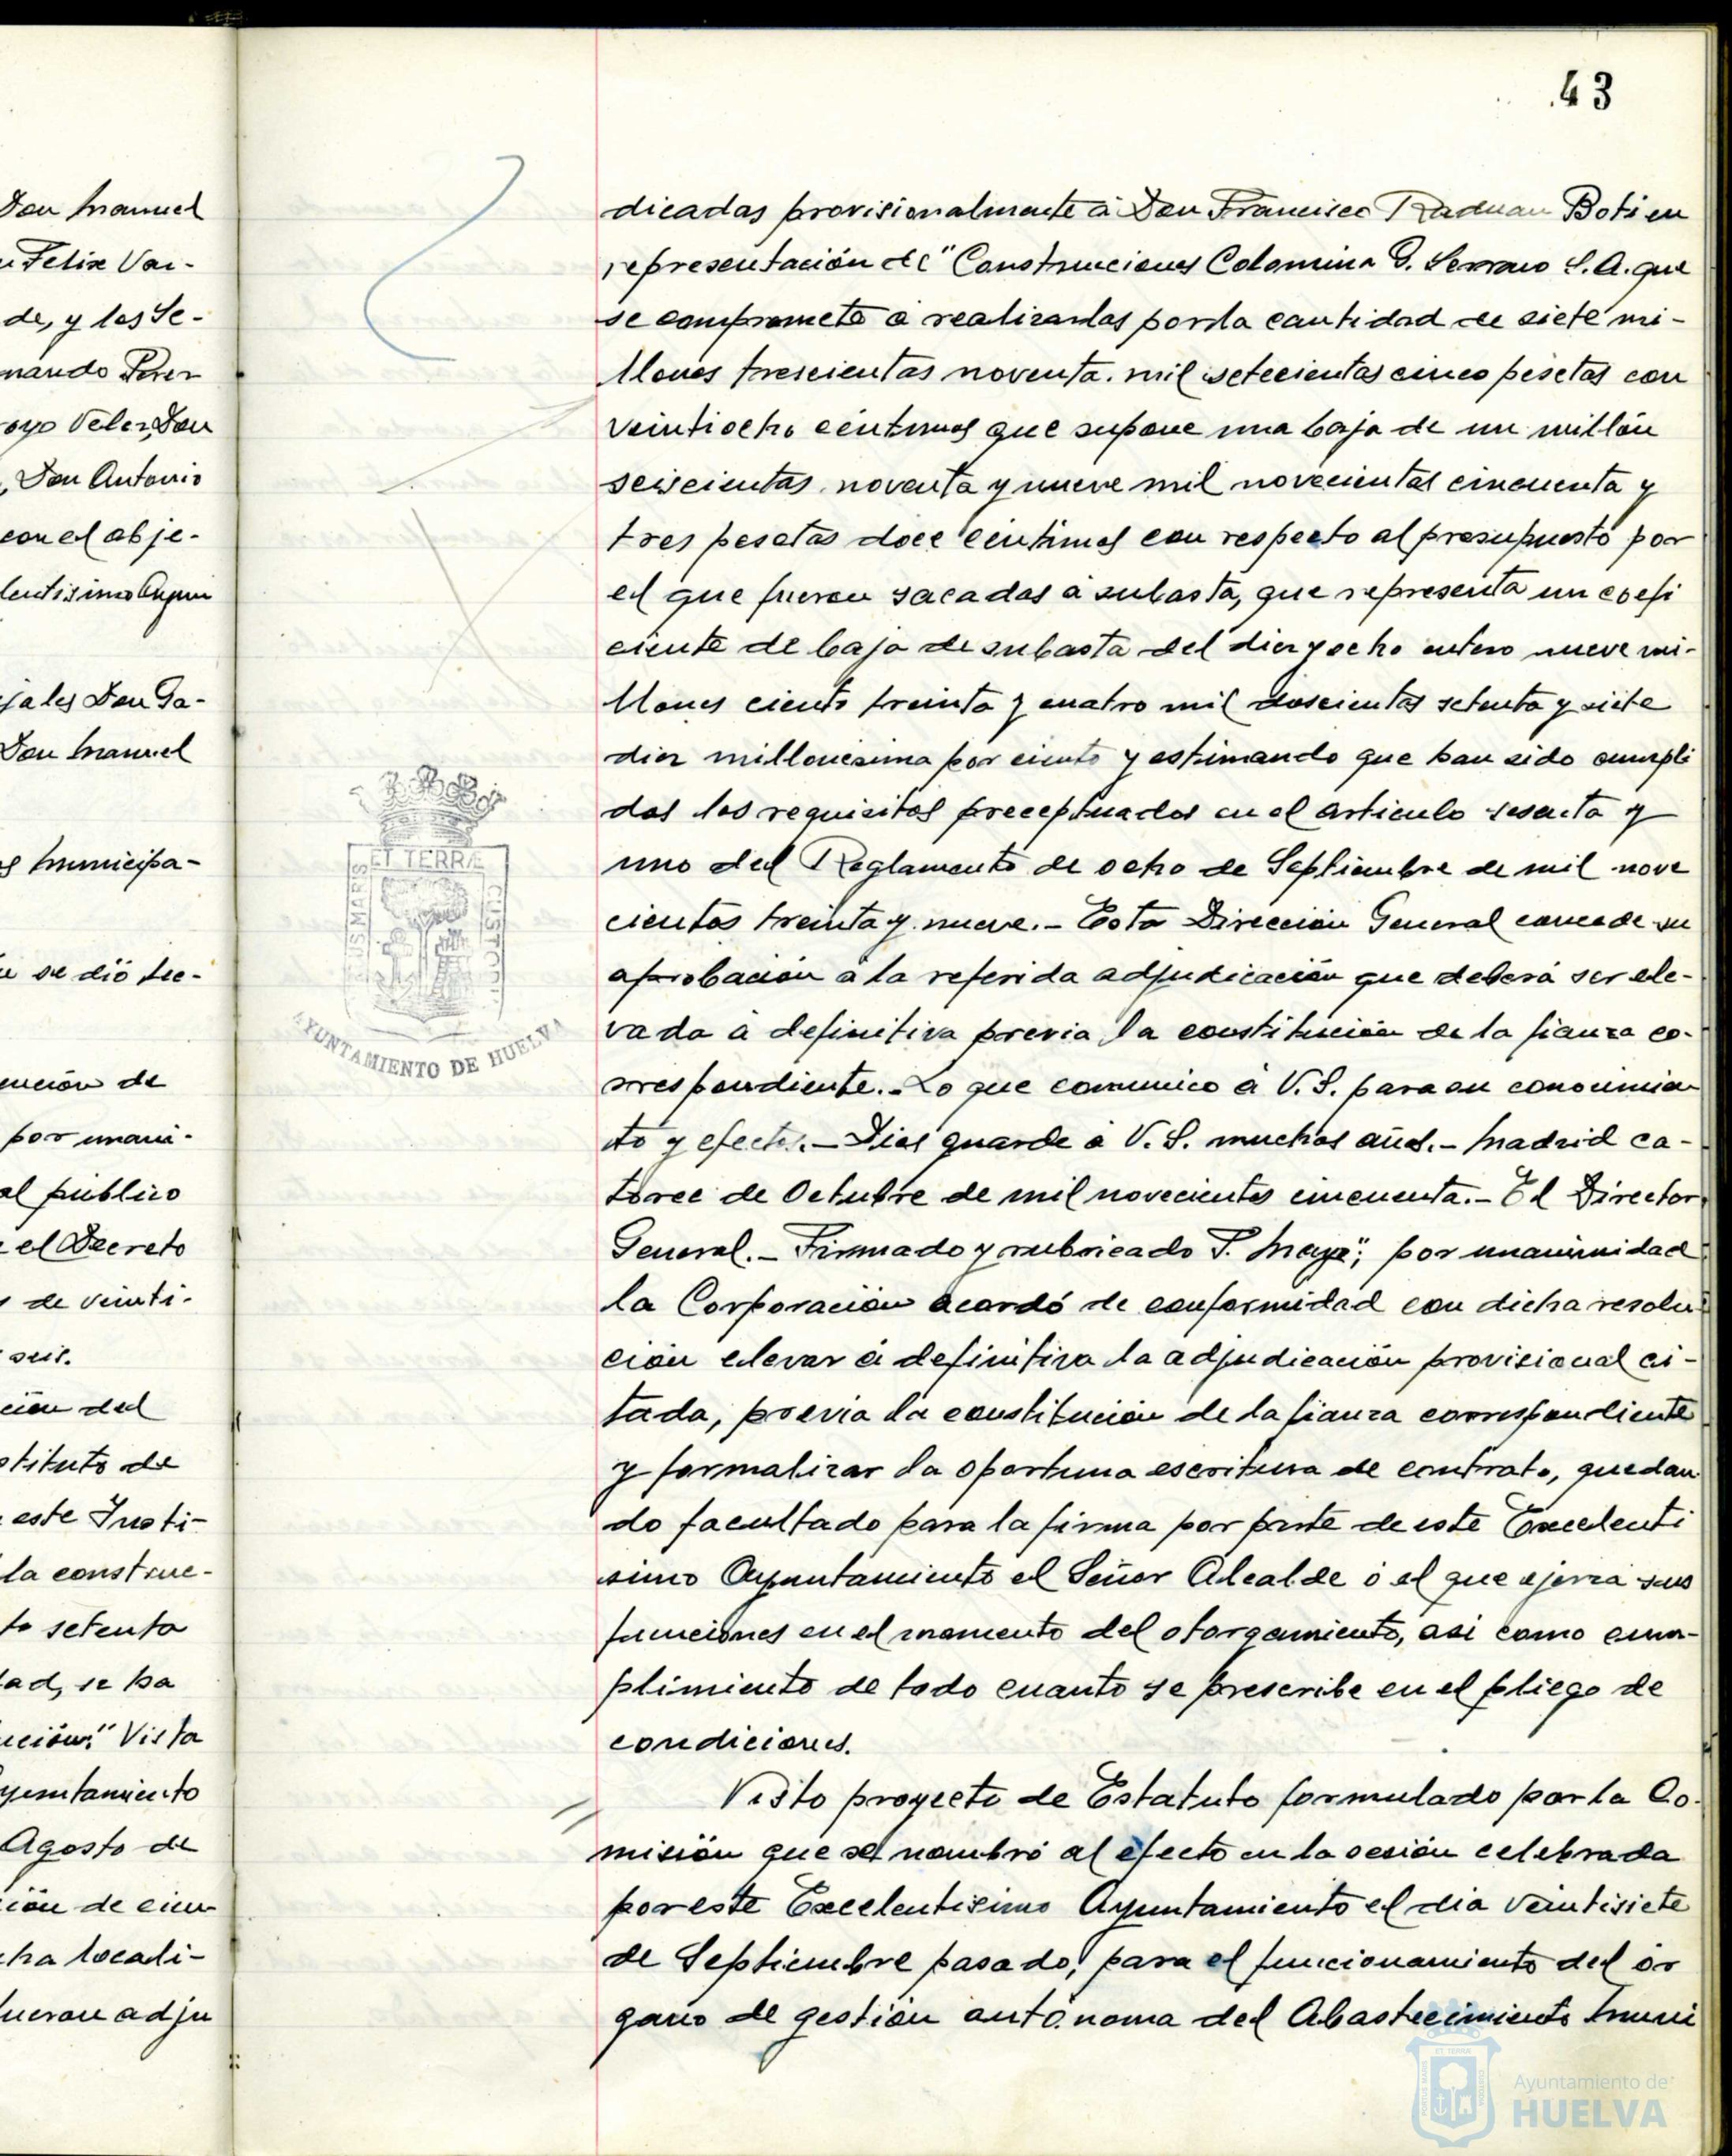 Don Manuel
Felix Vaz-
de, y los Se-
nando Perez
oyo Velez, Don
, Don Antonio
con el obje-
lentisimo Ayun
jales Don Ga-
Don Manuel
s Municipa-
se dió lec-
ución de
por unani-
al público
el Decreto
de veinti-
seis.
ción del
stituto de
este Insti-
la construc-
to setenta
dad, se ha
ución." Vista
yuntamiento
Agosto de
ión de cin-
cha locali-
fueron adju
43
dicadas provisionalmente á Don Francisco Raduan Boti en
representación de "Construciones Colomina G. Serrano S.A. que
se compromete a realizarlas por la cantidad de siete mi-
llones trescientas noventa mil setecientas cinco pesetas con
veintiocho céntimos que supone una baja de un millón
seiscientas noventa y nueve mil novecientas cincuenta y
tres pesetas doce céntimos con respecto al presupuesto por
el que fueron sacadas á subasta, que representa un coefi
ciente de baja de subasta del diez y ocho entero nueve mi-
llones ciento treinta y cuatro mil doscientas setenta y siete
diez millonesima por ciento y estimando que han sido cumpli
dos los requisitos preceptuados en el articulo sesenta y
uno del Reglamento de ocho de Septiembre de mil nove
cientos treinta y nueve.- Esta Dirección General concede su
aprobación a la referida adjudicación que deberá ser ele-
vada á definitiva previa la constitución de la fianza co-
rrespondiente.- Lo que comunico á V.S. para su conocimien
to y efectos.- Dios guarde á V.S. muchos años.- Madrid ca-
torce de Octubre de mil novecientos cincuenta.- El Director
General.- Firmado y rubricado F. Mayo"; por unanimidad
la Corporación acordó de conformidad con dicha resolu-
ción elevar á definitiva la adjudicación provisional ci-
tada, previa la constitución de la fianza correspondiente
y formalizar la oportuna escritura de contrato, quedan
do facultado para la firma por parte de este Excelenti
simo Ayuntamiento el Señor Alcalde ó el que ejerza sus
funciones en el momento del otorgamiento, asi como cum-
plimiento de todo cuanto se prescribe en el pliego de
condiciones.
Visto proyecto de Estatuto formulado por la Co-
misión que se nombró al efecto en la sesión celebrada
por este Excelentisimo Ayuntamiento el dia veintisiete
de Septiembre pasado, para el funcionamiento del ór
gano de gestión autónoma del Abastecimiento Muni
ET TERRÆ
CUSTODIT
AYUNTAMIENTO DE HUELVA
Ayuntamiento de
HUELVA